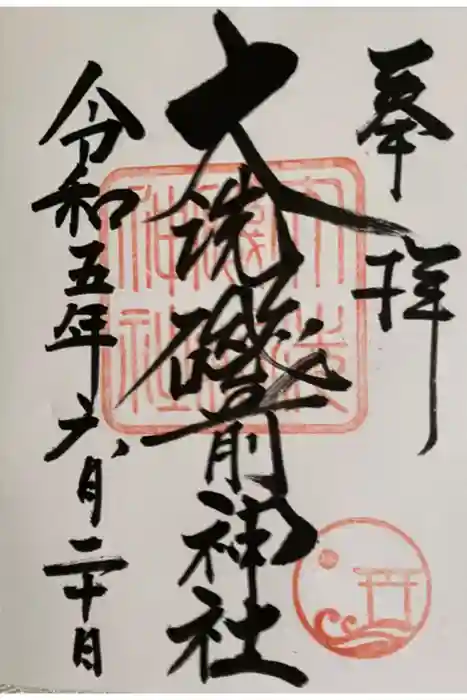 奉拝
大洗磯前神社
令和五年六月二十日